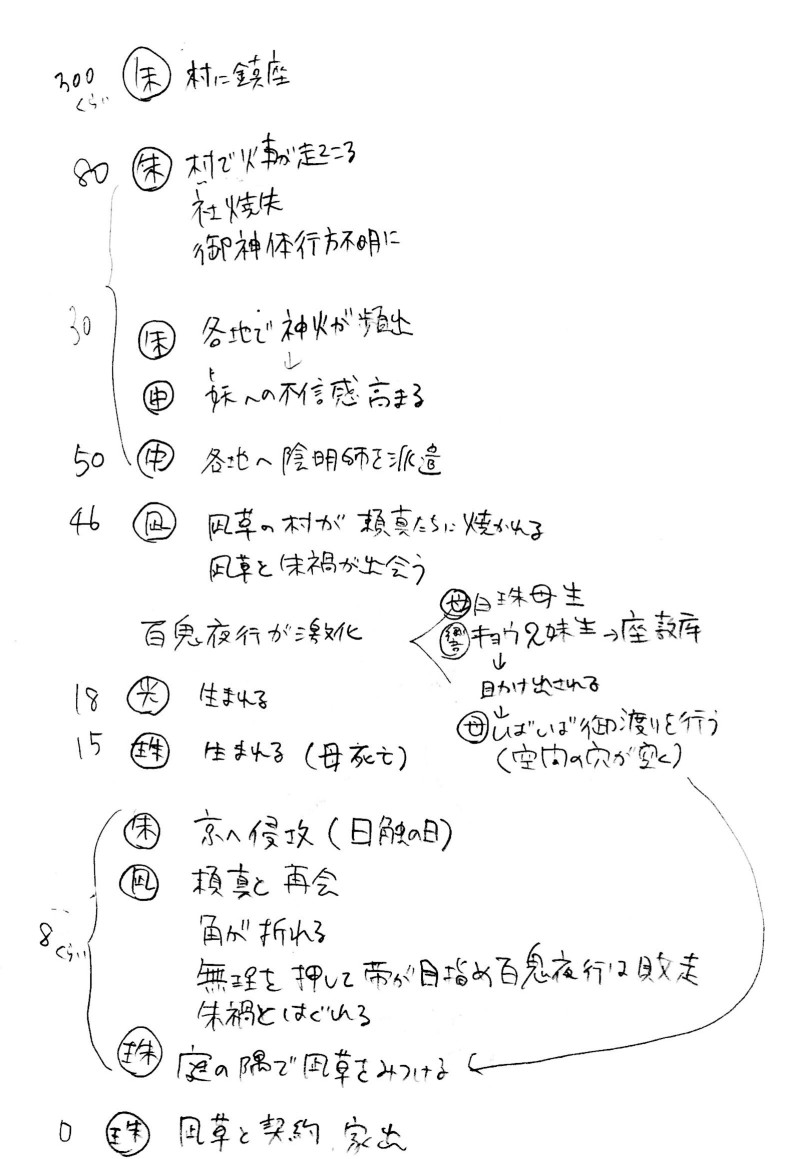 300 くらい 朱 村に鎮座
80 朱 村で火事が起こる
社焼失
御神体行方不明に
30 朱 各地で神火が頻出
↓
申 妹への不信感高まる
50 申 各地へ陰明師を派遣
46 凪 凪草の村が頼真たちに焼かれる
凪草と朱禍が出会う
百鬼夜行が激化
母 白珠母生
響 キョウ兄妹生→座敷牢
↓
目かけ出される
↓
母 しばしば御渡りを行う
(空間の穴が空く)
18 光 生まれる
15 珠 生まれる(母死亡)
8 くらい
朱 京へ侵攻(日触の日)
凪 頼真と再会
角が折れる
無理を押して帝が目指め百鬼夜行は敗走
朱禍とはぐれる
珠 庭の隅で凪草をみつける
0 珠 凪草と契約 家出